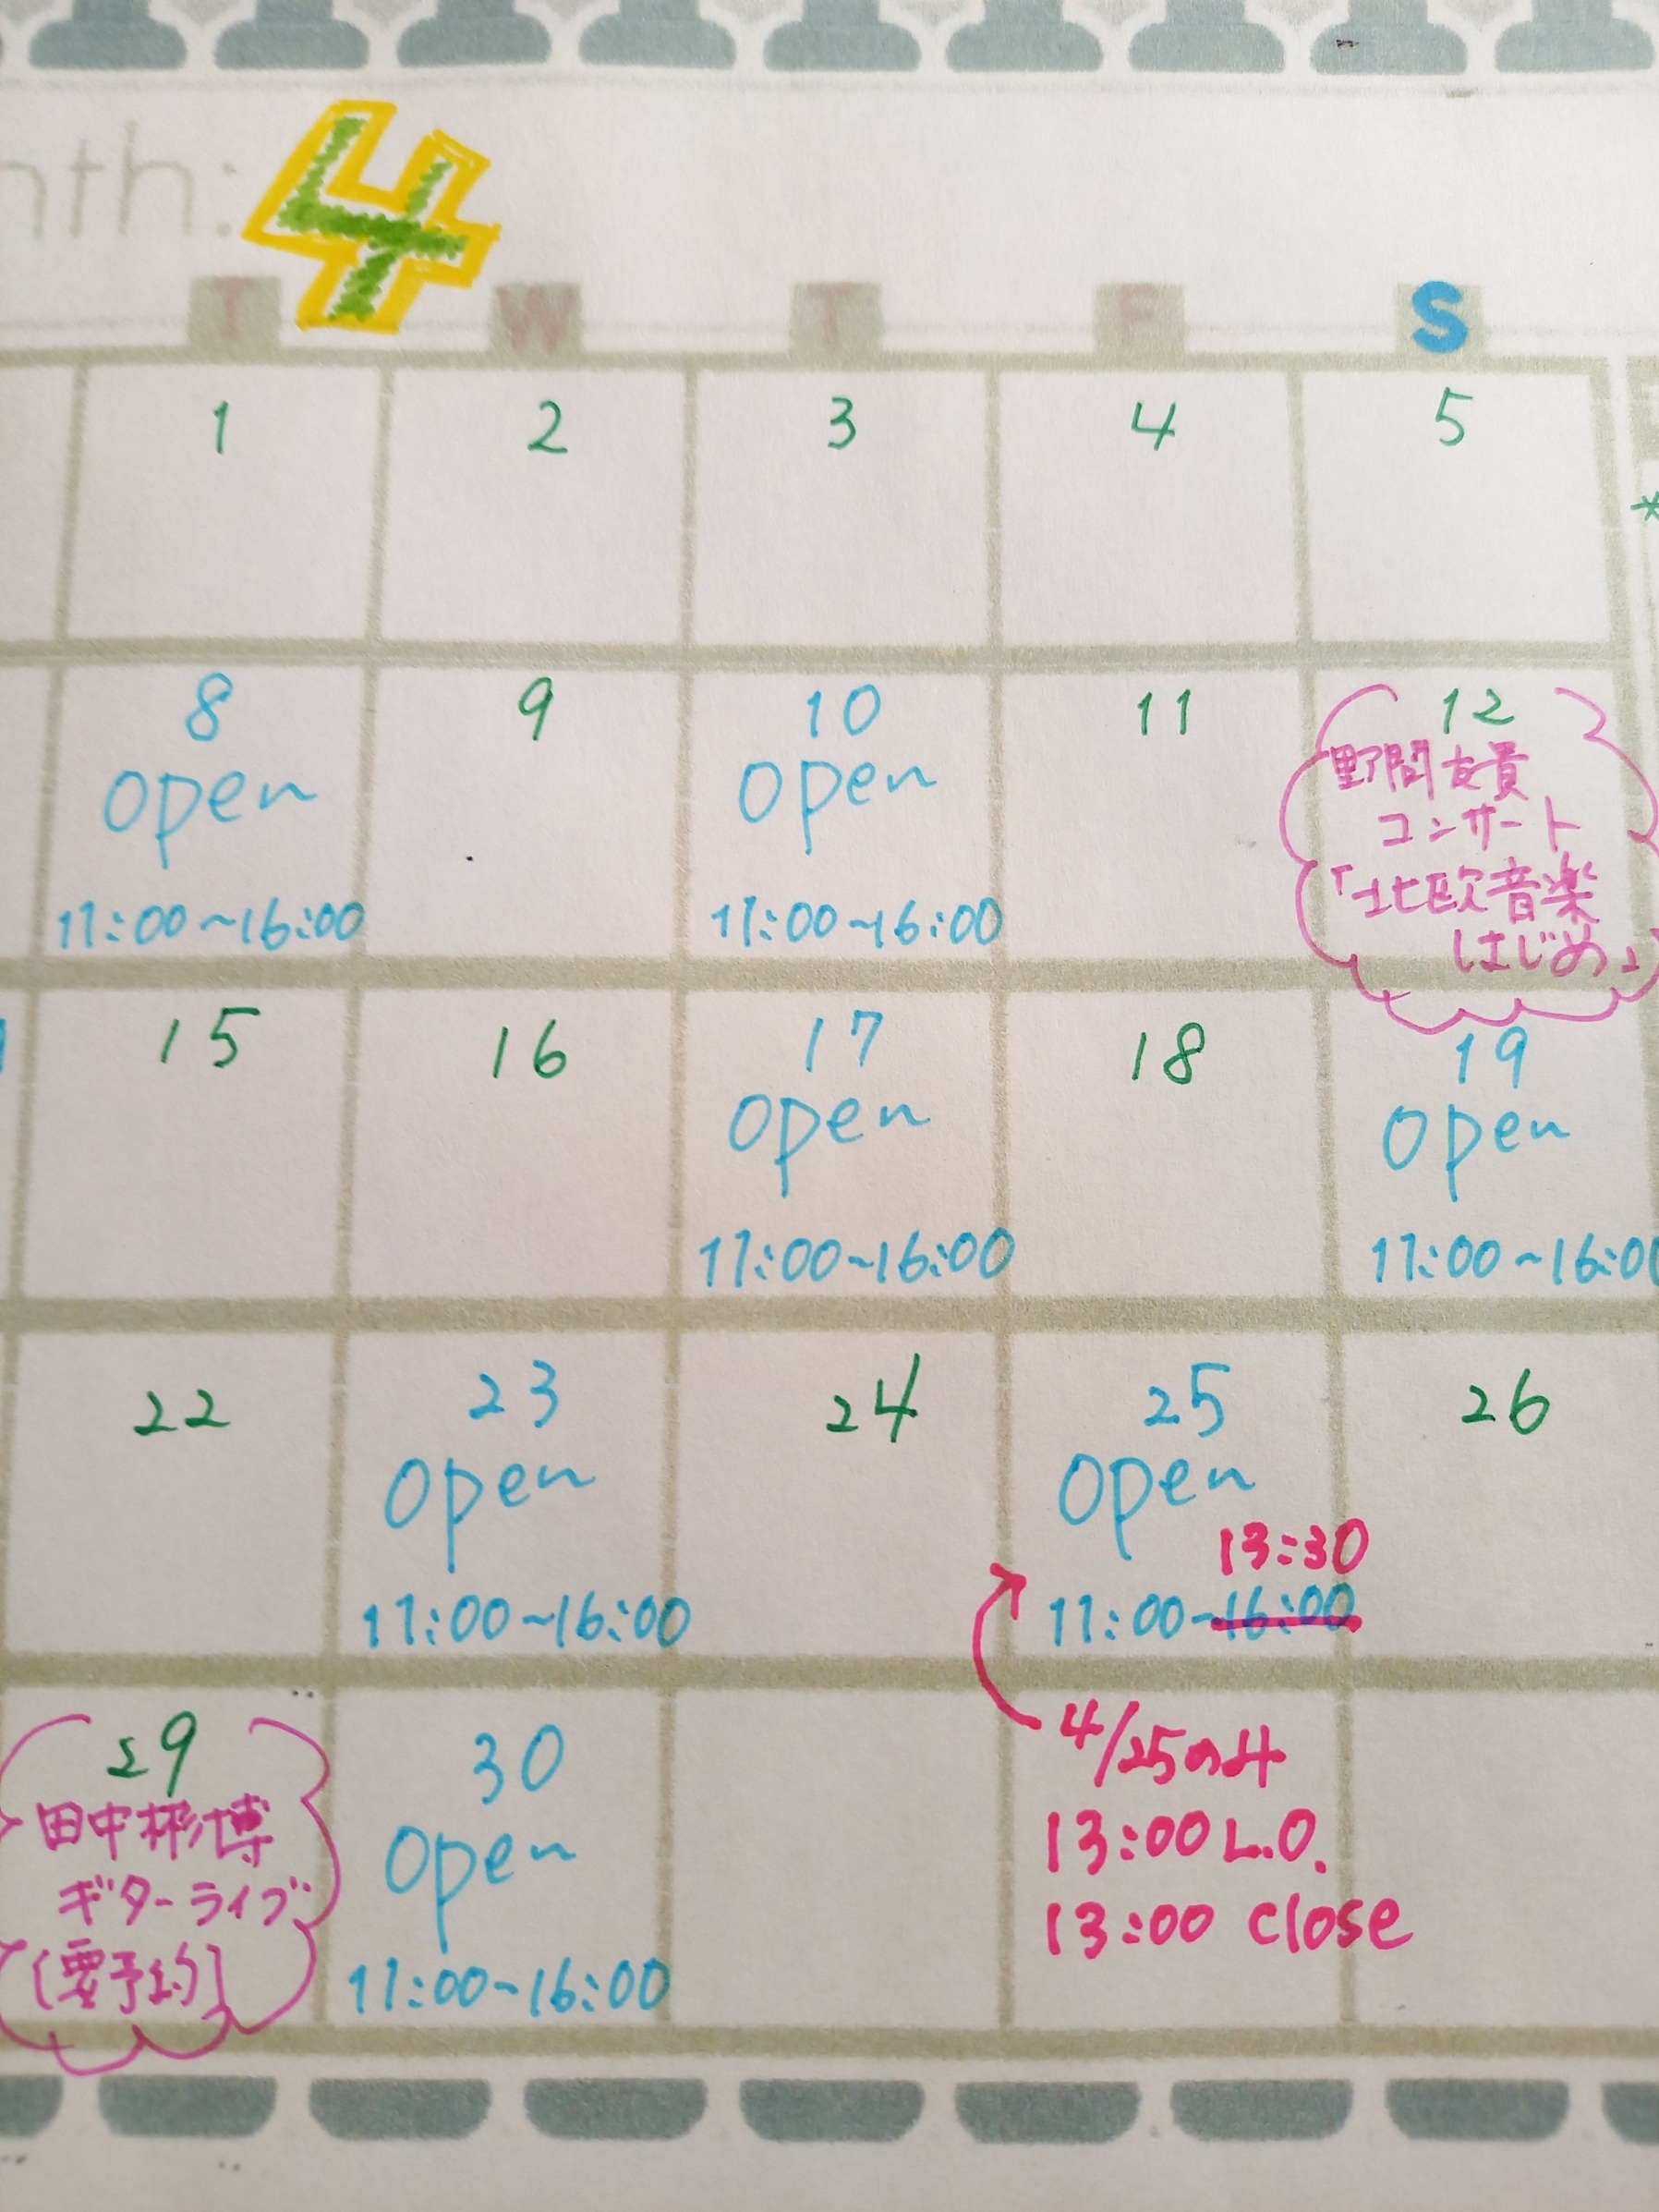 nth: 4
T W T F S
1 2 3 4 5
*
8 9 10 11 12
open open
11:00~16:00 11:00~16:00
野間友貴
コンサート
「北欧音楽
はじめ」
15 16 17 18 19
open open
11:00~16:00 11:00~16:00
22 23 24 25 26
open open
13:30
11:00~16:00 11:00~16:00
29 30
田中彬博
ギターライブ
[要予約]
open
11:00~16:00
4/25のみ
13:00 L.O.
13:00 close